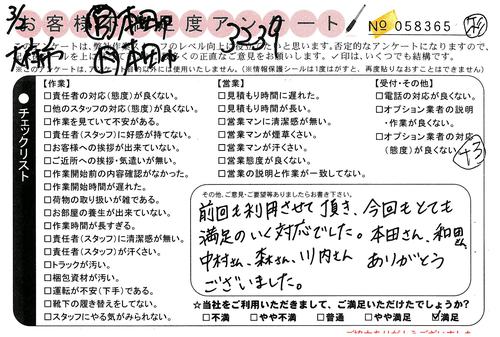 お客様満足度アンケート
3339
No 058365
※このアンケートは、弊社
ルを上に
チェックリスト
【作業】
□責任者の対応(態度)が良くない。
□他のスタッフの対応(態度)が良くない。
□作業を見ていて不安がある。
□責任者(スタッフ)に好感が持てない。
□お客様への挨拶が出来ていない。
□ご近所への挨拶・気遣いが無い。
□作業開始前の内容確認がなかった。
□作業開始時間が遅れた。
□荷物の取り扱いが雑である。
□お部屋の養生が出来ていない。
□作業時間が長すぎる。
□責任者(スタッフ)に清潔感が無い。
□責任者(スタッフ)が汗くさい。
□トラックが汚い。
□梱包資材が汚い。
□運転が不安(下手)である。
□靴下の履き替えをしてない。
□スタッフにやる気がみられない。
【営業】
□見積もり時間に遅れた。
□見積もり時間が長い。
□営業マンに清潔感が無い。
□営業マンが煙草くさい。
□営業マンが汗くさい。
□営業態度が良くない。
□営業の説明と作業が一致してない。
【受付・その他】
□電話の対応が良くない。
□オプション業者の説明
・作業が良くない。
□オプション業者の対応
(態度)が良くない。
+3
その他、ご意見・ご要望等ありましたらお書き下さい。
前回も利用させて頂き、今回もとても
満足のいく対応でした。本田さん、和田さん
中村さん、森さん、川内さん ありがとう
ございました。
☆当社をご利用いただきまして、ご満足いただけたでしょうか?
□不満 □やや不満 □普通 □やや満足 ☑満足